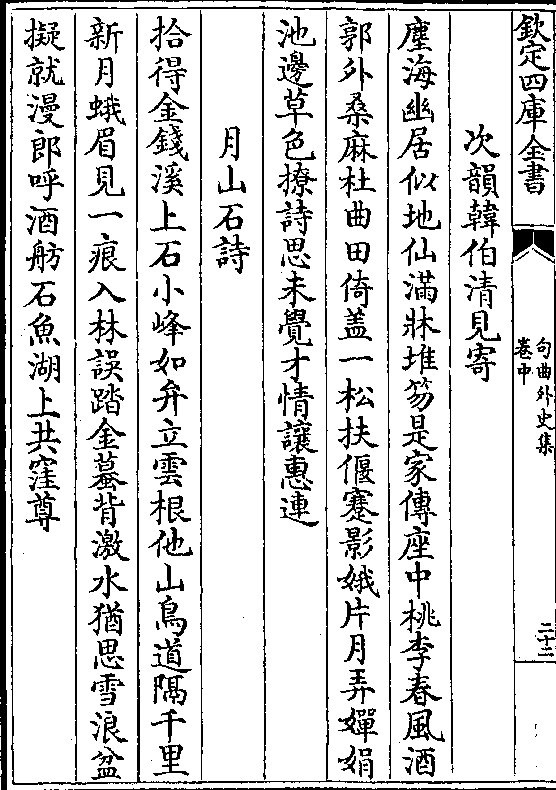 欽定四庫全書
句曲外史集
卷中
二十二
次韻韓伯清見寄
塵海幽居似地仙滿牀堆笏是家傳座中桃李春風酒
郭外桑麻杜曲田倚蓋一松扶偃蹇影娥片月弄嬋娟
池邊草色撩詩思未覺才情讓惠連
月山石詩
拾得金錢溪上石小峰如弁立雲根他山鳥道隔千里
新月蛾眉見一痕入林誤踏金蟇背激水猶思雪浪盆
擬就漫郎呼酒舫石魚湖上共窪尊